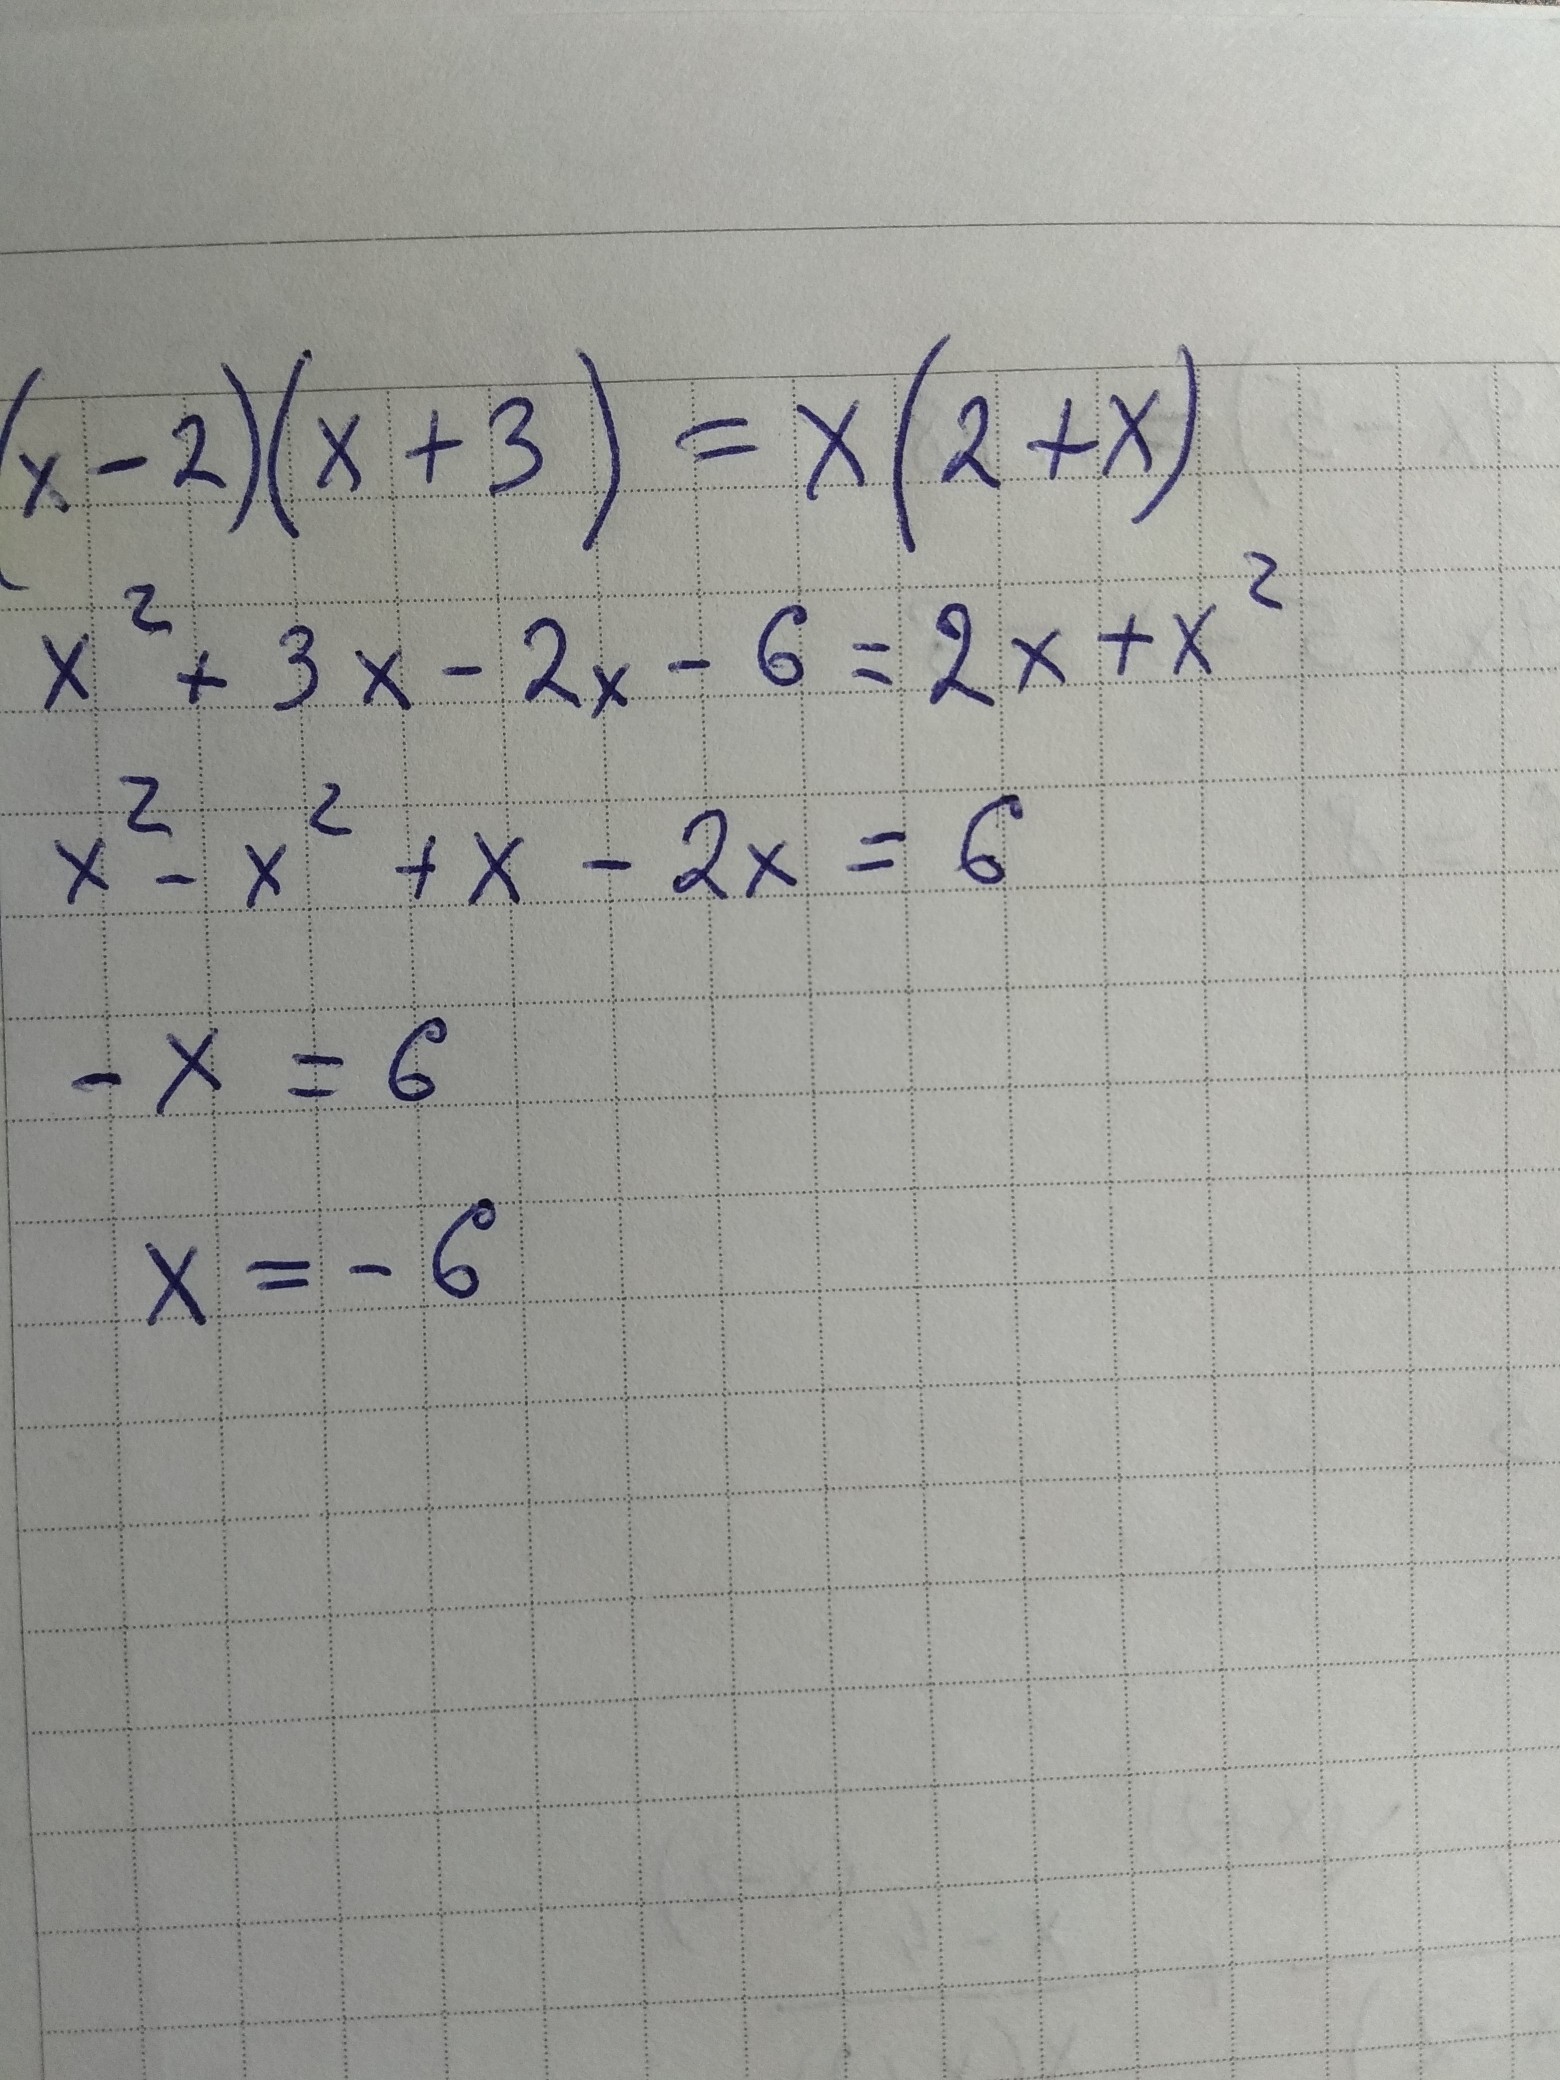 (x-2)(x+3)=x(2+x)
x²+3x-2x-6=2x+x²
x²-x²+x-2x=6
-x=6
x=-6